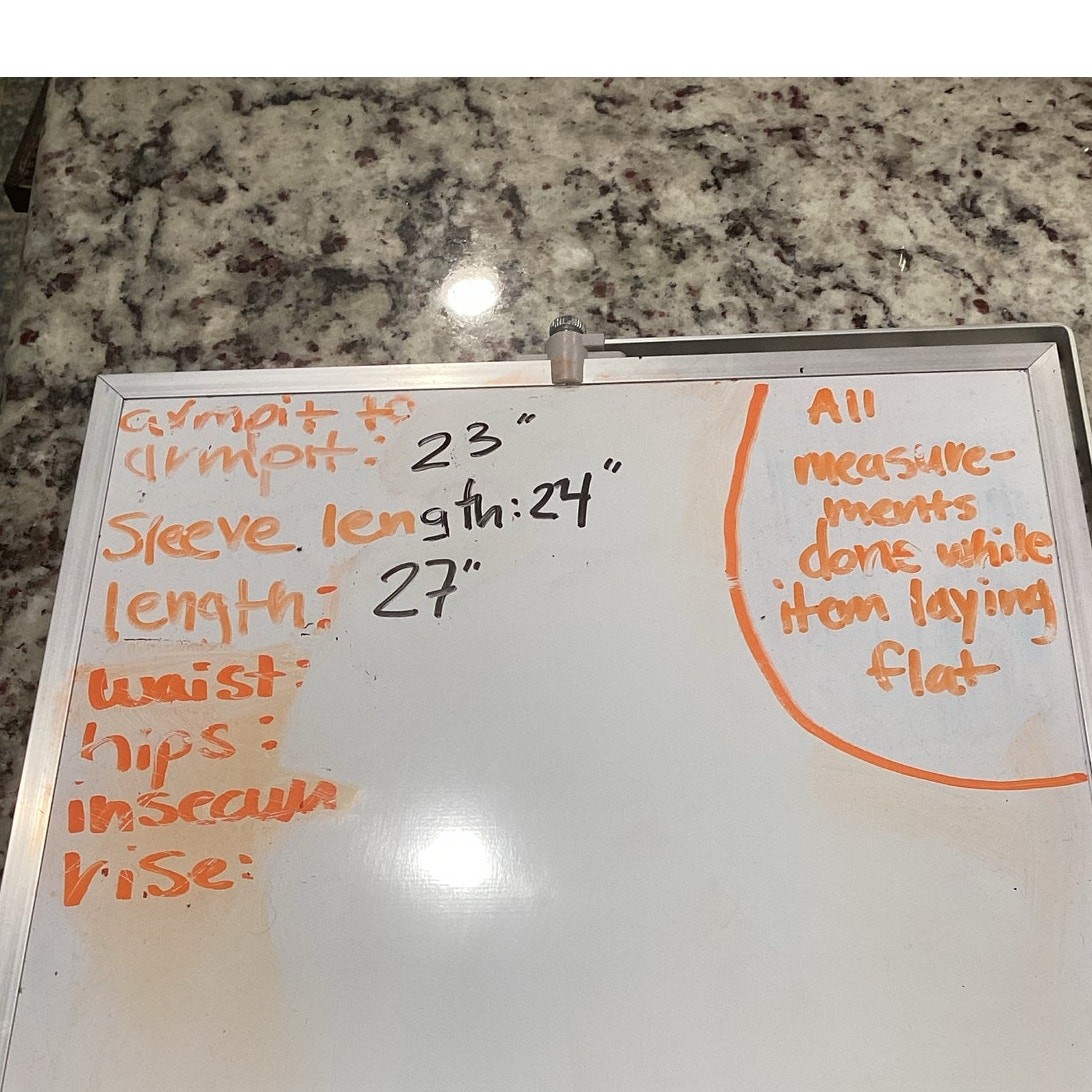 armpit to
armpit: 23"
Sleeve length: 24"
length: 27"
waist:
hips:
inseam
rise:
All
measure-
ments
done while
item laying
flat